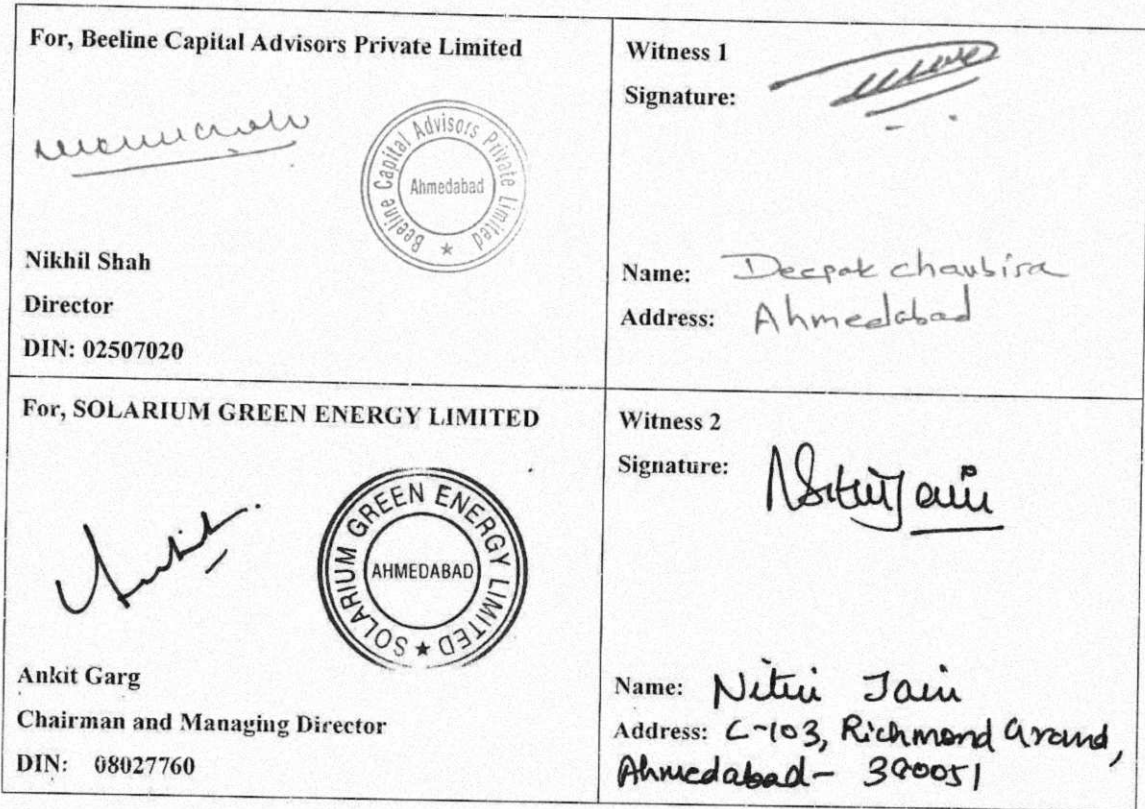 For, Beeline Capital Advisors Private Limited
Beeline Capital Advisors Private Limited
Ahmedabad
Nikhil Shah
Director
DIN: 02507020
Witness 1
Signature:
Name: Deepak chaubisa
Address: Ahmedabad
For, SOLARIUM GREEN ENERGY LIMITED
SOLARIUM GREEN ENERGY LIMITED
AHMEDABAD
Ankit Garg
Chairman and Managing Director
DIN: 08027760
Witness 2
Signature: Nitin Jain
Name: Nitin Jain
Address: C-103, Richmond Grand,
Ahmedabad - 380051